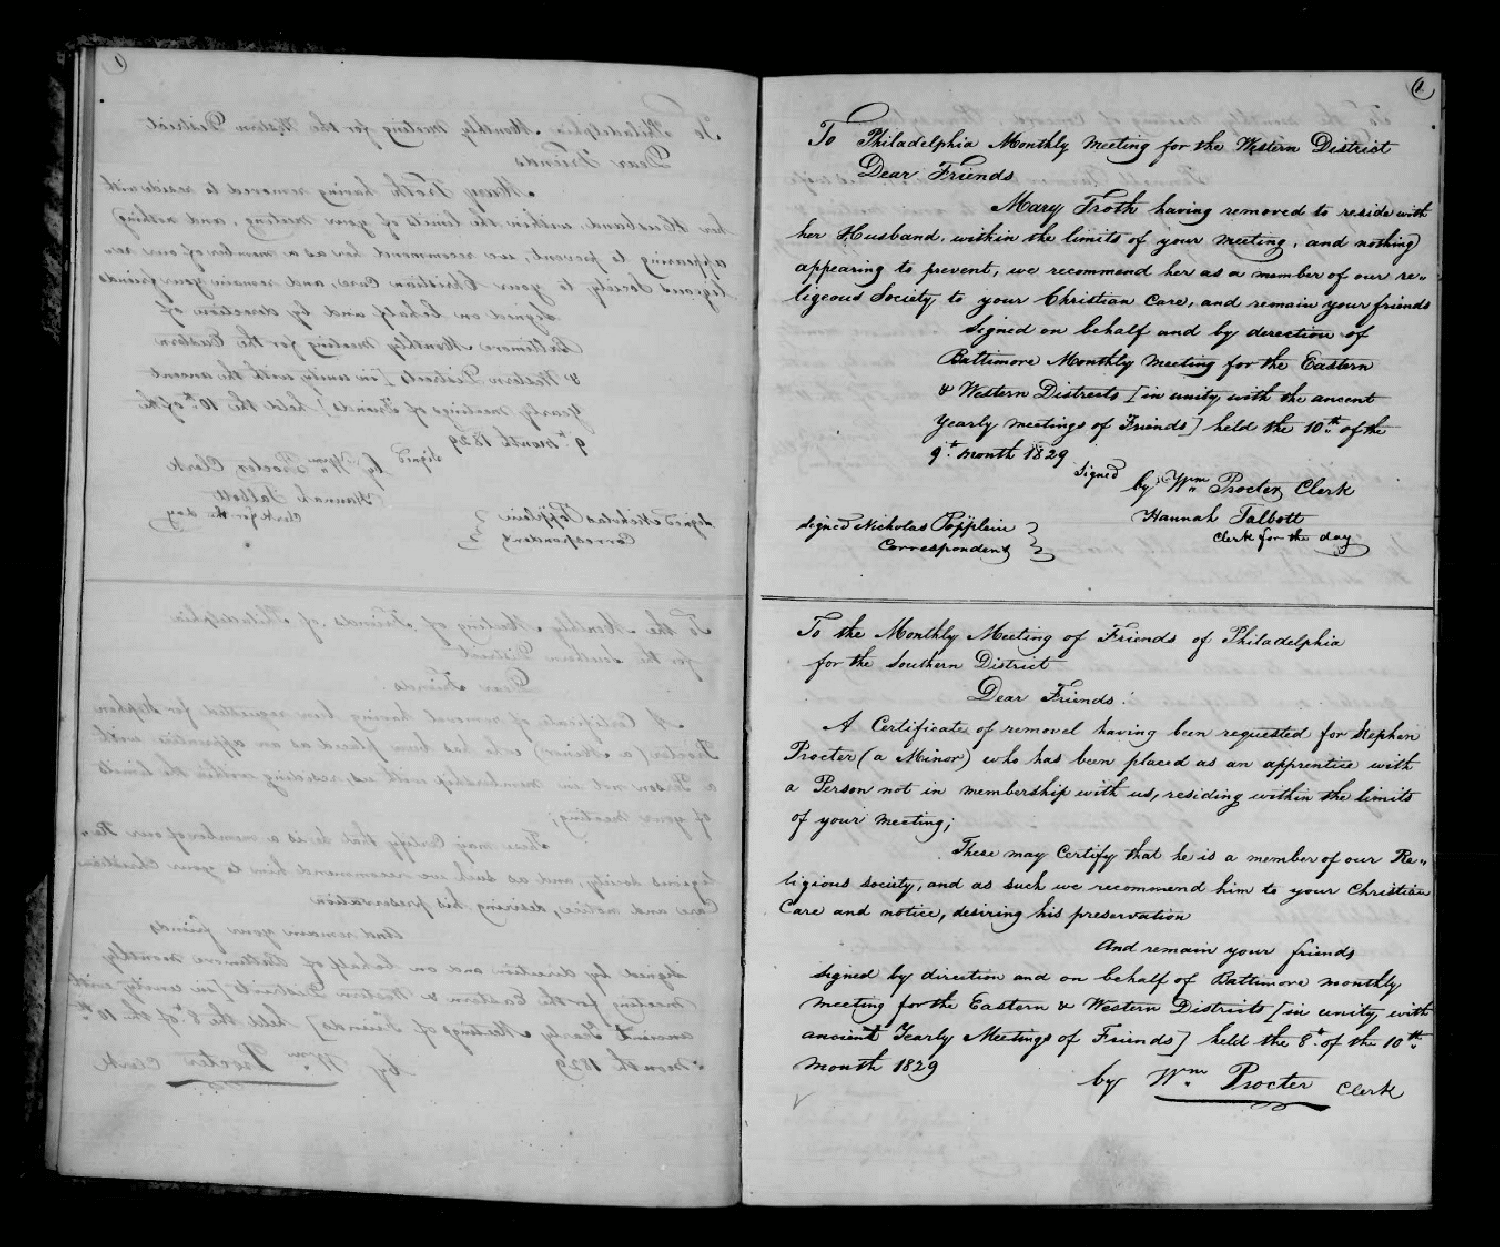 1
To Philadelphia Monthly Meeting for the Western District
Dear Friends
Mary Troth having removed to reside with
her Husband, within the limits of your meeting, and nothing
appearing to prevent, we recommend her as a member of our re„
ligeous Society, to your Christian Care, and remain your friends
Signed on behalf and by derection of
Baltimore Monthly Meeting for the Eastern
& Western Districts [in unity with the ancent
Yearly meetings of Friends] held the 10th of the
9th month 1829
Signed
by Wm Procter Clerk
Hannah Talbott
Clerk for the day
Signed Nicholas Pöpplein
Correspondent
To the Monthly Meeting of Friends of Philadelphia
for the Southern District
Dear Friends.
A Certificate of removel having been requested for Stephen
Procter (a Minor) who has been placed as an apprentice with
a Person not in membership with us, residing within the limits
of your meeting;
These may Certify that he is a member of our Re„
ligious society, and as such we recommend him to your Christian
Care and notice, desiring his preservation
And remain your friends
Signed by direction and on behalf of Baltimore monthly
meeting for the Eastern & Western Districts [in unity with
ancient Yearly Meetings of Friends] held the 8th of the 10th
month 1829
by Wm Procter Clerk